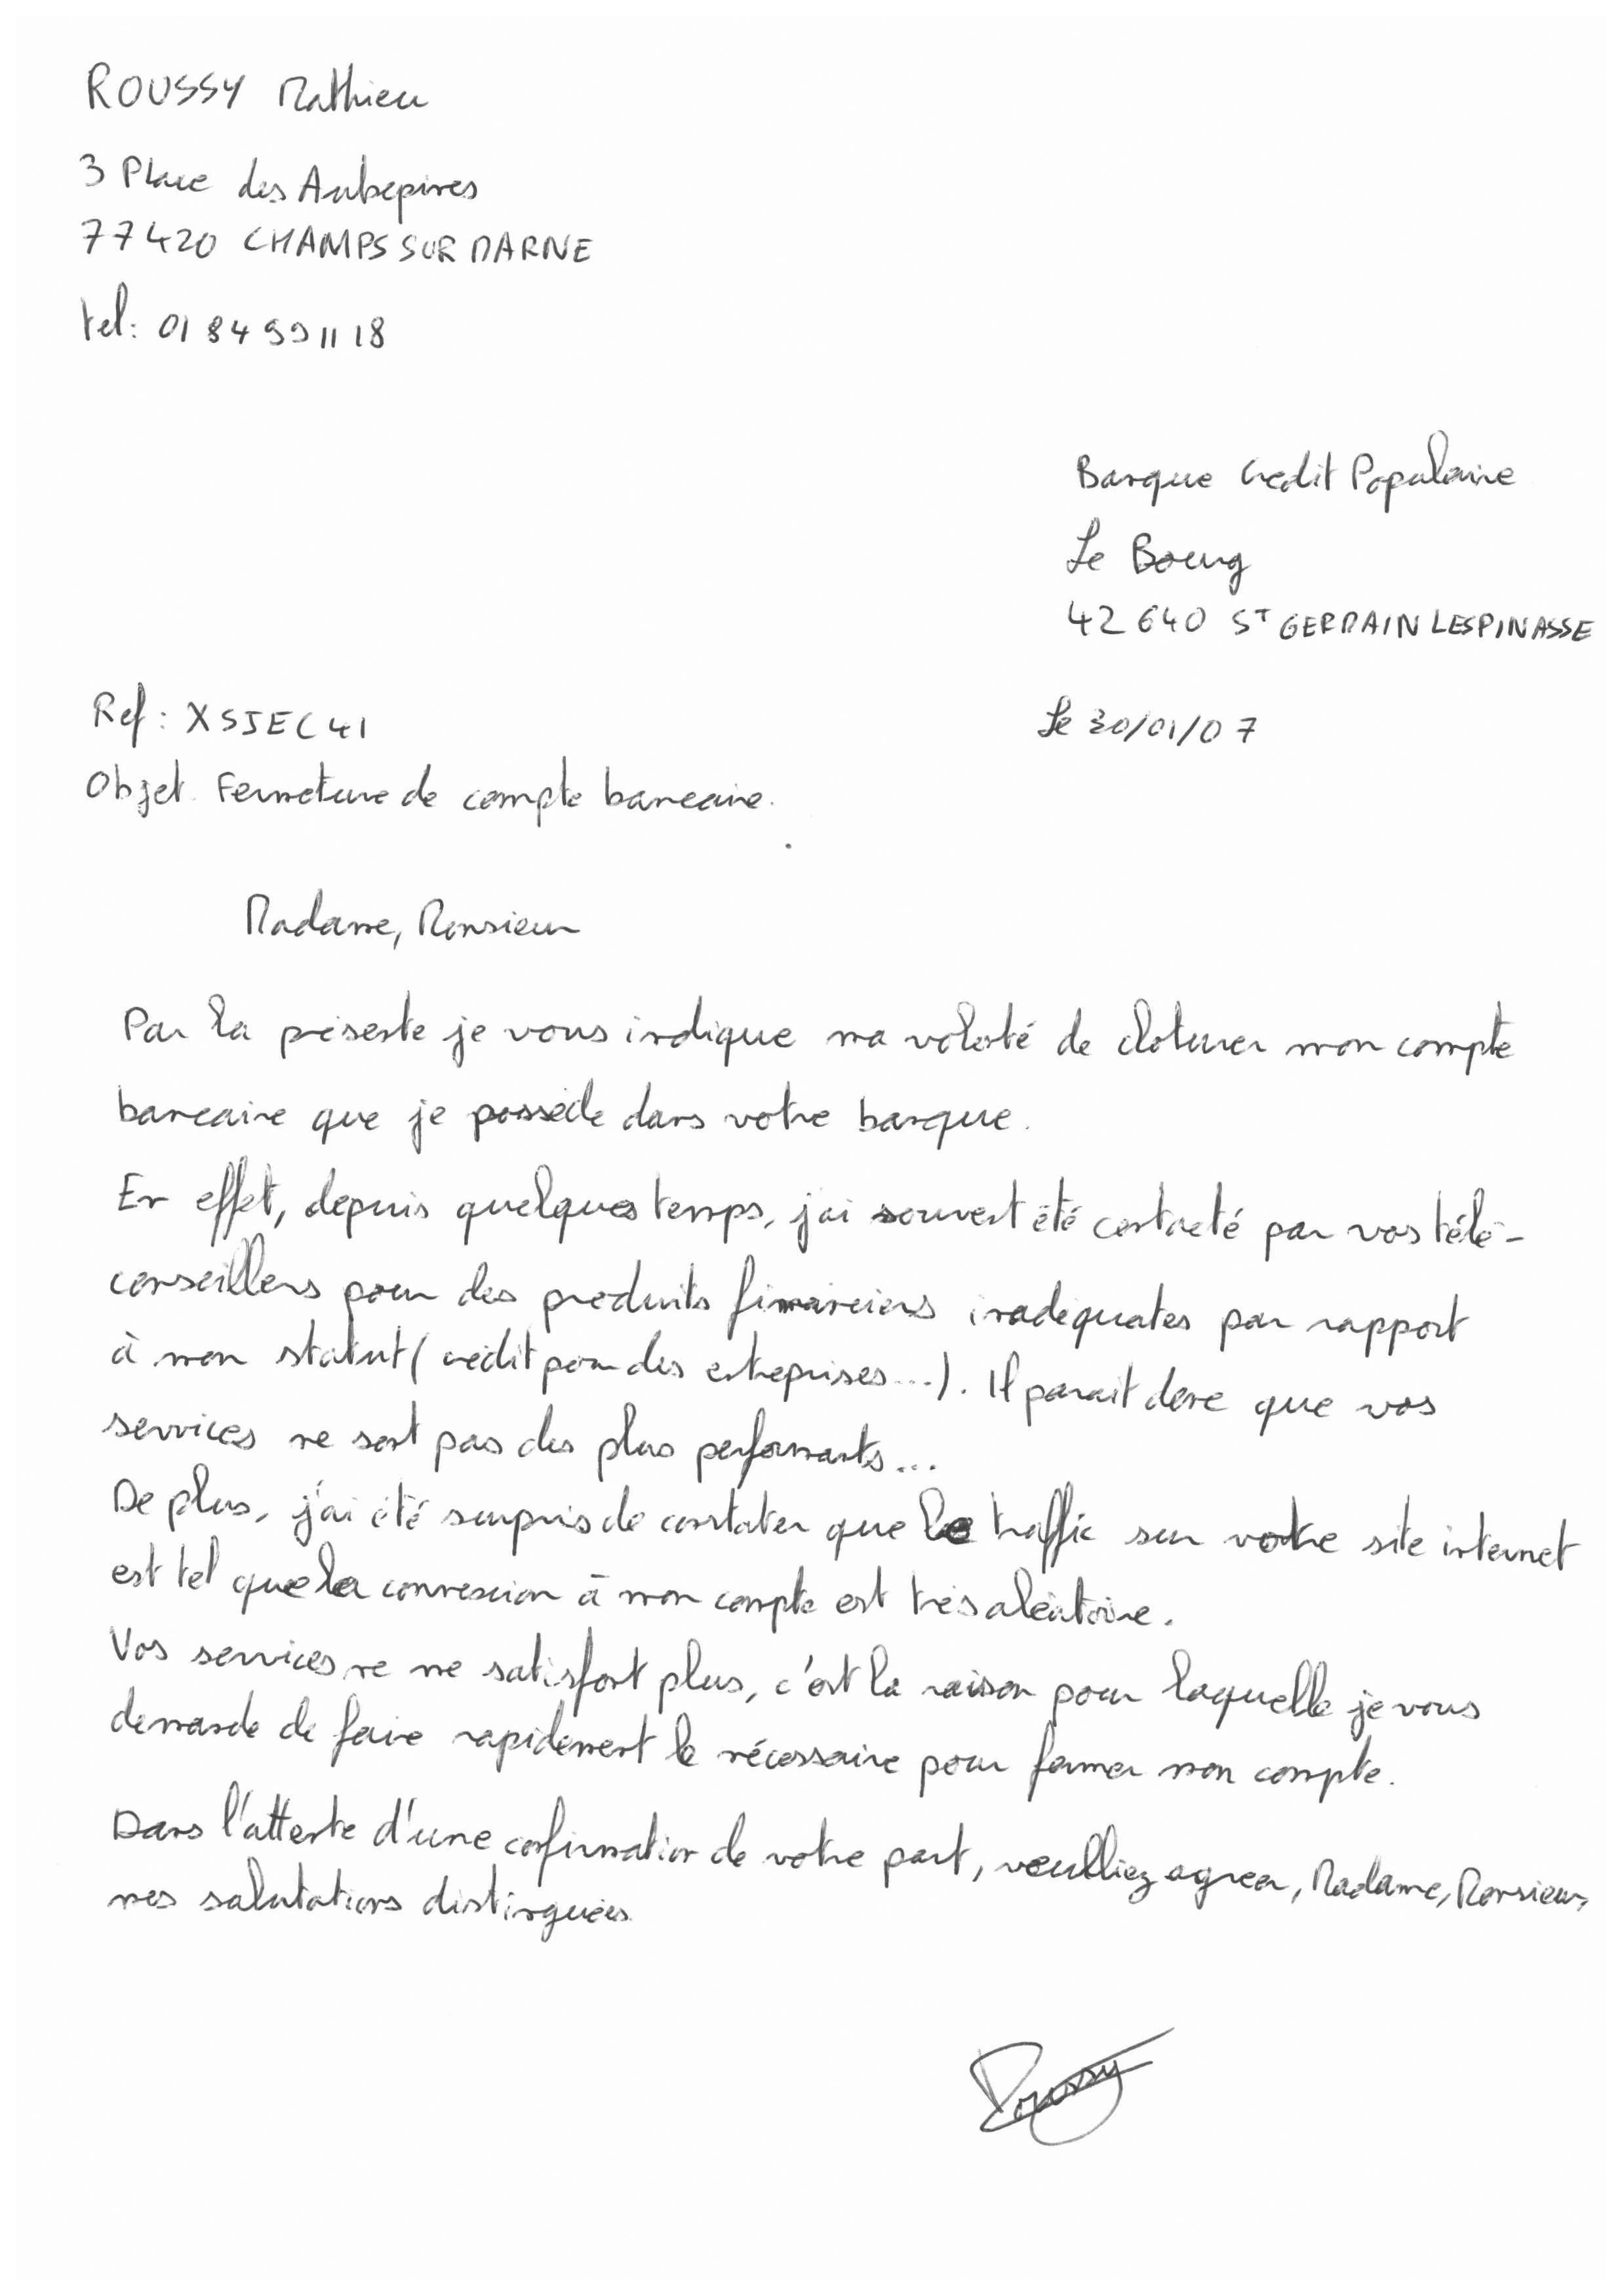 ROUSSY Mathieu
3 Place des Aubepines
77420 CHAMPS SUR MARNE
tel: 01 84 99 11 18
Banque Credit Populaire
Le Bourg
42 640 ST GERMAIN LESPINASSE
Ref : XSJEC41
Le 30/01/07
Objet. Fermeture de compte bancaire.
Madame, Monsieur
Par la présente je vous indique ma volonté de cloturer mon compte
bancaire que je possède dans votre banque.
En effet, depuis quelques temps, j'ai souvent été contacté par vos télé-
conseillers pour des produits financiers inadéquates par rapport
à mon statut (crédit pour des entreprises...). Il parait donc que vos
services ne sont pas des plus performants...
De plus, j'ai été surpris de constater que le traffic sur votre site internet
est tel que la connexion à mon compte est très aléatoire.
Vos services ne me satisfont plus, c'est la raison pour laquelle je vous
demande de faire rapidement le nécessaire pour fermer mon compte.
Dans l'attente d'une confirmation de votre part, veulliez agreer, Madame, Monsieur,
mes salutations distinguées.
Roussy